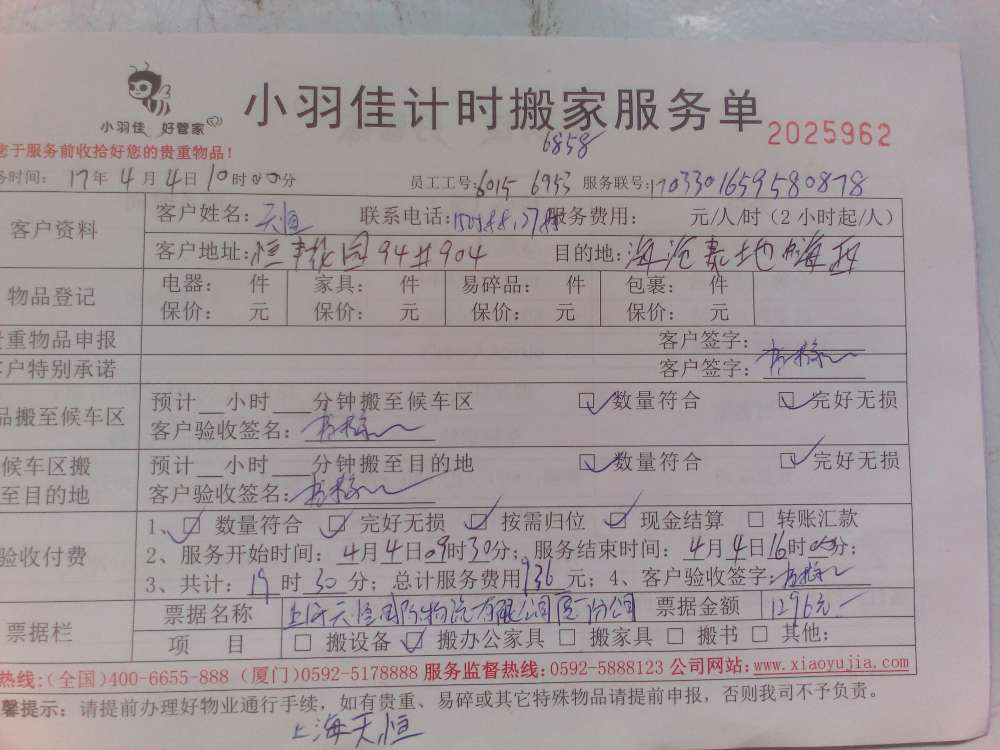 小羽佳 好管家
小羽佳计时搬家服务单
2025962
您于服务前收拾好您的贵重物品！
6858
务时间： 17年4月4日10时00分 员工工号：6015 6953 服务联号：1703301659580878
客户资料 客户姓名：天恒 联系电话： 服务费用： 元/人/时（2小时起/人）
客户地址：恒丰花园94#904 目的地：海沧豪地
物品登记 电器： 件 家具： 件 易碎品： 件 包裹： 件
保价： 元 保价： 元 保价： 元 保价： 元
贵重物品申报 客户签字：
客户特别承诺 客户签字：
品搬至候车区 预计__小时___分钟搬至候车区 数量符合 完好无损
客户验收签名：
候车区搬至目的地 预计__小时___分钟搬至目的地 数量符合 完好无损
客户验收签名：
验收付费 1、 数量符合 完好无损 按需归位 现金结算 转账汇款
2、服务开始时间：4月4日09时30分；服务结束时间：4月4日16时00分；
3、共计：19时30分；总计服务费用936元；4、客户验收签字：
票据栏 票据名称 上海天恒国际物流有限公司厦门分公司 票据金额 1296元
项 目 搬设备 搬办公家具 搬家具 搬书 其他：
热线：(全国)400-6655-888 (厦门)0592-5178888 服务监督热线：0592-5888123 公司网站：www.xiaoyujia.com
馨提示：请提前办理好物业通行手续，如有贵重、易碎或其它特殊物品请提前申报，否则我司不予负责。
上海天恒